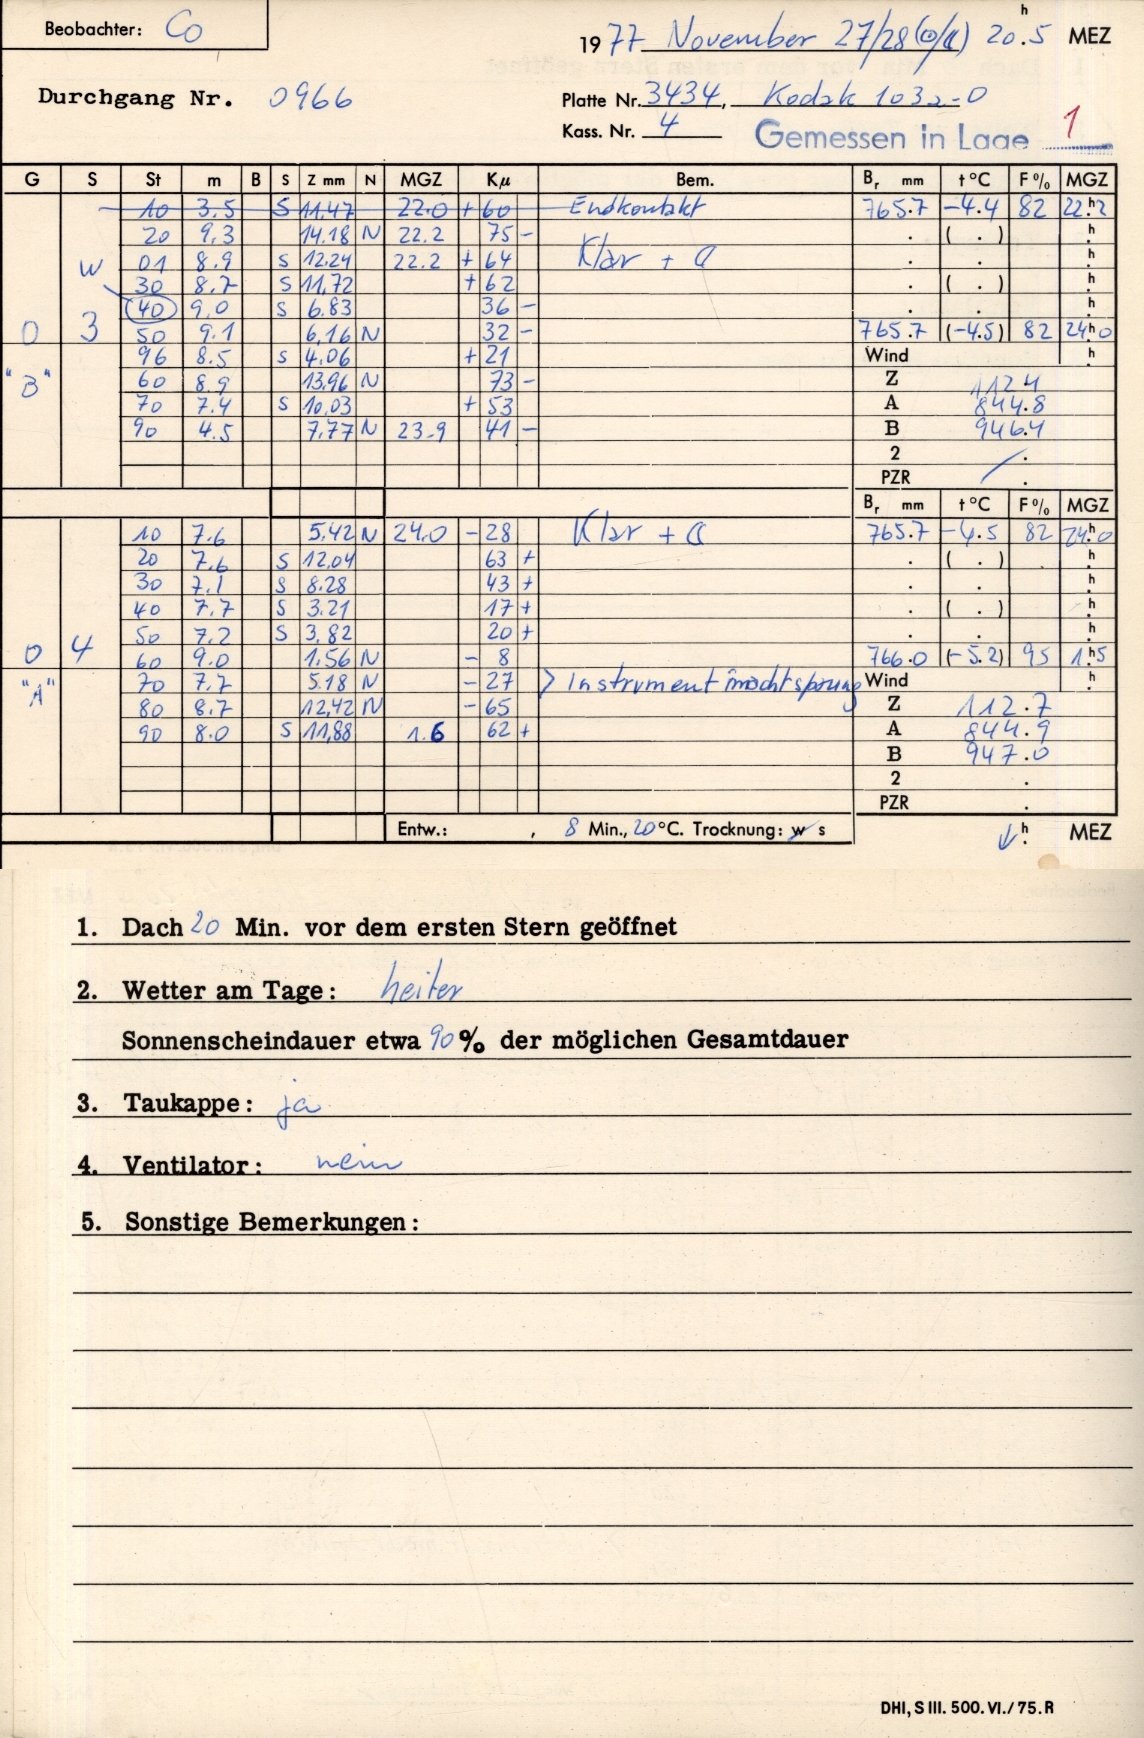 Beobachter: Co
1977 November 27/28 20h.5 MEZ
Durchgang Nr. 0966
Platte Nr. 3434, Kodak 103a-O
Kass. Nr. 4
Gemessen in Lage 1
G S St m B S Z mm N MGZ Kμ Bem. Br mm t°C F% MGZ
10 3.5 S 11.47 22.0 + 60 Endkontakt 765.7 -4.4 82 22h.2
20 9.3 14.18 N 22.2 75 - . ( . ) h.
W 01 8.9 S 12.24 22.2 + 64 Klar + . . h.
30 8.7 S 11.72 + 62 . ( . ) h.
40 9.0 S 6.83 36 - . . h.
0 3 50 9.1 6.16 N 32 - 765.7 (-4.5) 82 24h.0
96 8.5 S 4.06 + 21 Wind h.
"B" 60 8.9 13.96 N 73 - Z 112 4
70 7.4 S 10.03 + 53 A 844.8
90 4.5 7.77 N 23.9 41 - B 946.4
2 .
PZR .
Br mm t°C F% MGZ
10 7.6 5.42 N 24.0 - 28 Klar + 765.7 -4.5 82 24h.0
20 7.6 S 12.04 63 + . ( . ) h.
30 7.1 S 8.28 43 + . . h.
40 7.7 S 3.21 17 + . ( . ) h.
50 7.2 S 3.82 20 + . . h.
0 4 60 9.0 1.56 N - 8 766.0 (-5.2) 95 1h.5
"A" 70 7.7 5.18 N - 27 > Instrument macht sprung Wind h.
80 8.7 12.42 N - 65 Z 112.7
90 8.0 S 11.88 1.6 62 + A 844.9
B 947.0
2 .
PZR .
Entw.: , 8 Min., 20°C. Trocknung: w s h. MEZ
1. Dach 20 Min. vor dem ersten Stern geöffnet
2. Wetter am Tage: heiter
Sonnenscheindauer etwa 90% der möglichen Gesamtdauer
3. Taukappe: ja
4. Ventilator: nein
5. Sonstige Bemerkungen:
DHI, S III. 500. VI./75. R